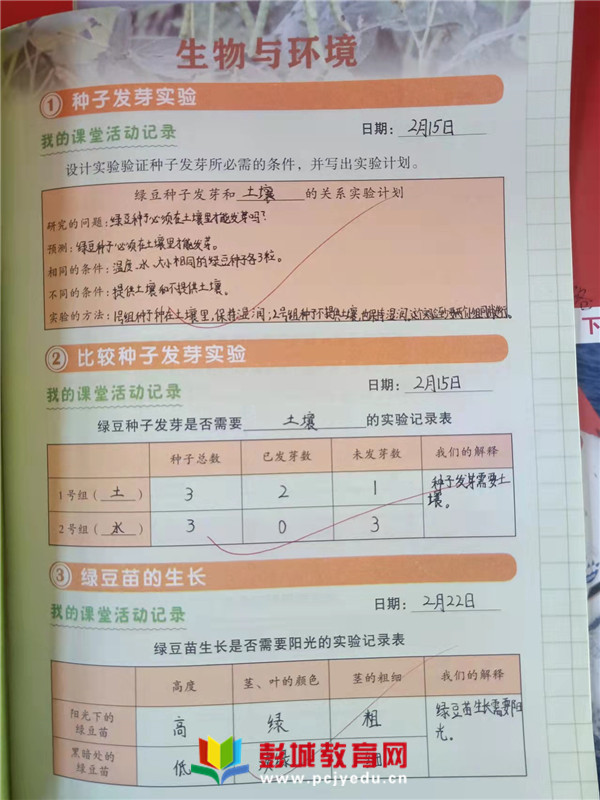 生物与环境
① 种子发芽实验
我的课堂活动记录 日期：2月15日
设计实验验证种子发芽所必需的条件，并写出实验计划。
绿豆种子发芽和 土壤 的关系实验计划
研究的问题：绿豆种子必须在土壤里才能发芽吗？
预测：绿豆种子必须在土壤里才能发芽。
相同的条件：温度、水、大小相同的绿豆种子各3粒。
不同的条件：提供土壤和不提供土壤。
实验的方法：1号组种子种在土壤里，保持湿润；2号组种子不提供土壤，也保持湿润。
② 比较种子发芽实验
我的课堂活动记录 日期：2月15日
绿豆种子发芽是否需要 土壤 的实验记录表
种子总数 已发芽数 未发芽数 我们的解释
1号组（土） 3 2 1 种子发芽需要土
壤。
2号组（水） 3 0 3
③ 绿豆苗的生长
我的课堂活动记录 日期：2月22日
绿豆苗生长是否需要阳光的实验记录表
高度 茎、叶的颜色 茎的粗细 我们的解释
阳光下的
绿豆苗 高 绿 粗 绿豆苗生长需要阳
光。
黑暗处的
绿豆苗 低
彭城教育网
www.pcjyedu.cn
下